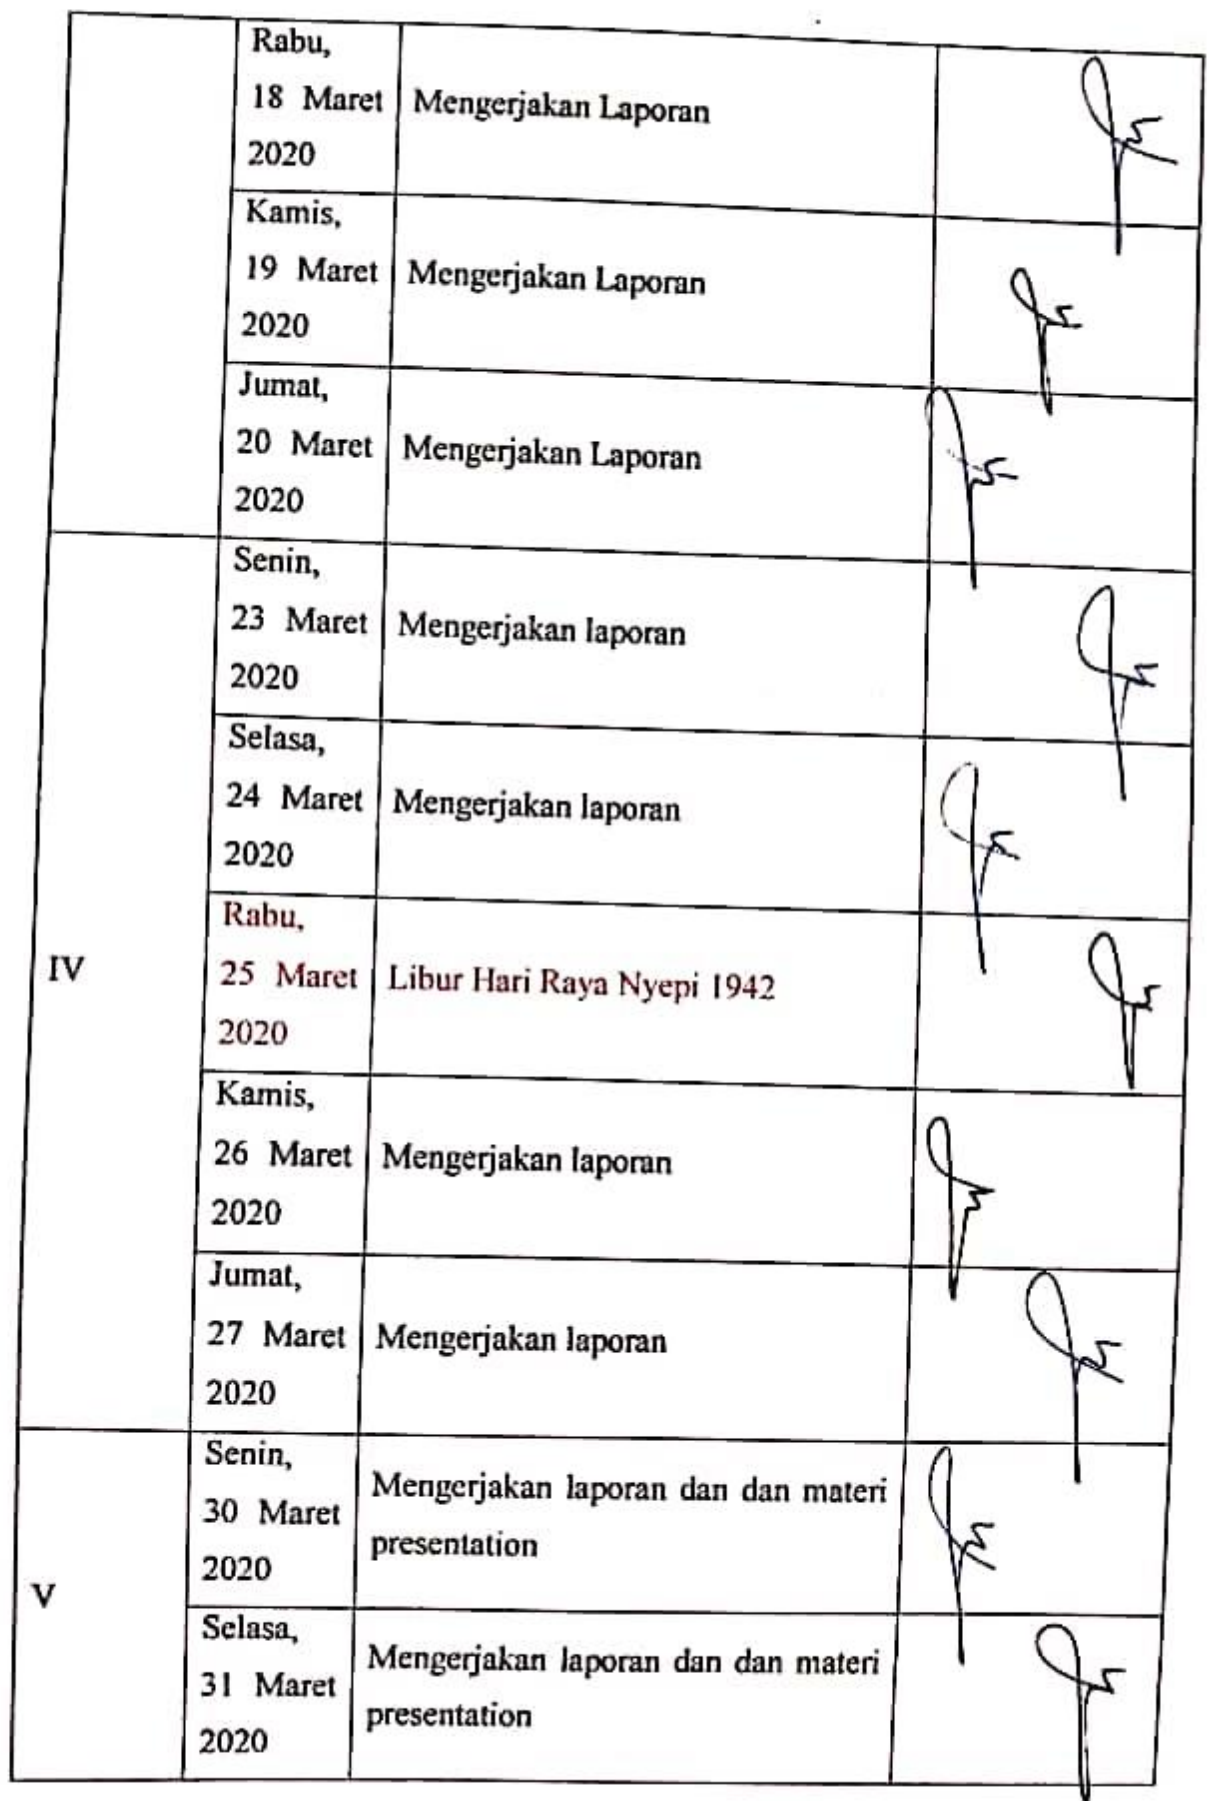 Rabu,
18 Maret
2020
Mengerjakan Laporan
Kamis,
19 Maret
2020
Mengerjakan Laporan
Jumat,
20 Maret
2020
Mengerjakan Laporan
IV
Senin,
23 Maret
2020
Mengerjakan laporan
Selasa,
24 Maret
2020
Mengerjakan laporan
Rabu,
25 Maret
2020
Libur Hari Raya Nyepi 1942
Kamis,
26 Maret
2020
Mengerjakan laporan
Jumat,
27 Maret
2020
Mengerjakan laporan
V
Senin,
30 Maret
2020
Mengerjakan laporan dan dan materi
presentation
Selasa,
31 Maret
2020
Mengerjakan laporan dan dan materi
presentation